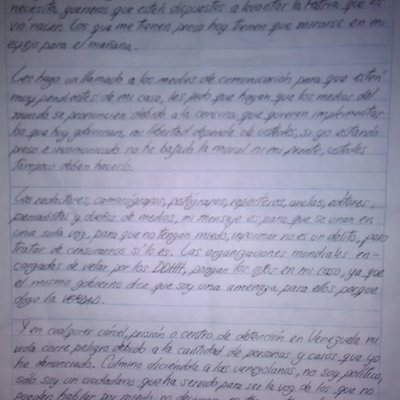 necesita guerreros que estén dispuestos a levantar la Patria que los
vio nacer. Los que me tienen preso hoy tienen que mirarse en mi
espejo para el mañana.
Les hago un llamado a los medios de comunicación para que estén
muy pendientes de mi caso, les pido que hagan que los medios del
mundo se pronuncien debido a la censura que quieren implementar
los que hoy gobiernan, mi libertad depende de ustedes, si yo estando
preso e incomunicado no he bajado la moral ni mi frente, ustedes
tampoco deben hacerlo.
Los redactores, camarógrafos, fotógrafos, reporteros, anclas, editores,
periodistas y dueños de medios, mi mensaje es para que se unan en
una sola voz, para que no tengan miedo, informar no es un delito, pero
tratar de censurarnos si lo es. Las organizaciones mundiales en-
cargadas de velar por los DDHH, pongan los ojos en mi caso, ya que
el mismo gobierno dice que soy una amenaza para ellos porque
digo la VERDAD.
Y en cualquier cárcel, prisión o centro de detención en Venezuela mi
vida corre peligro debido a la cantidad de personas y casos que yo
he denunciado. Culmino diciéndole a los venezolanos, no soy político,
solo soy un ciudadano que ha servido para ser la voz de los que no
pueden hablar por miedo